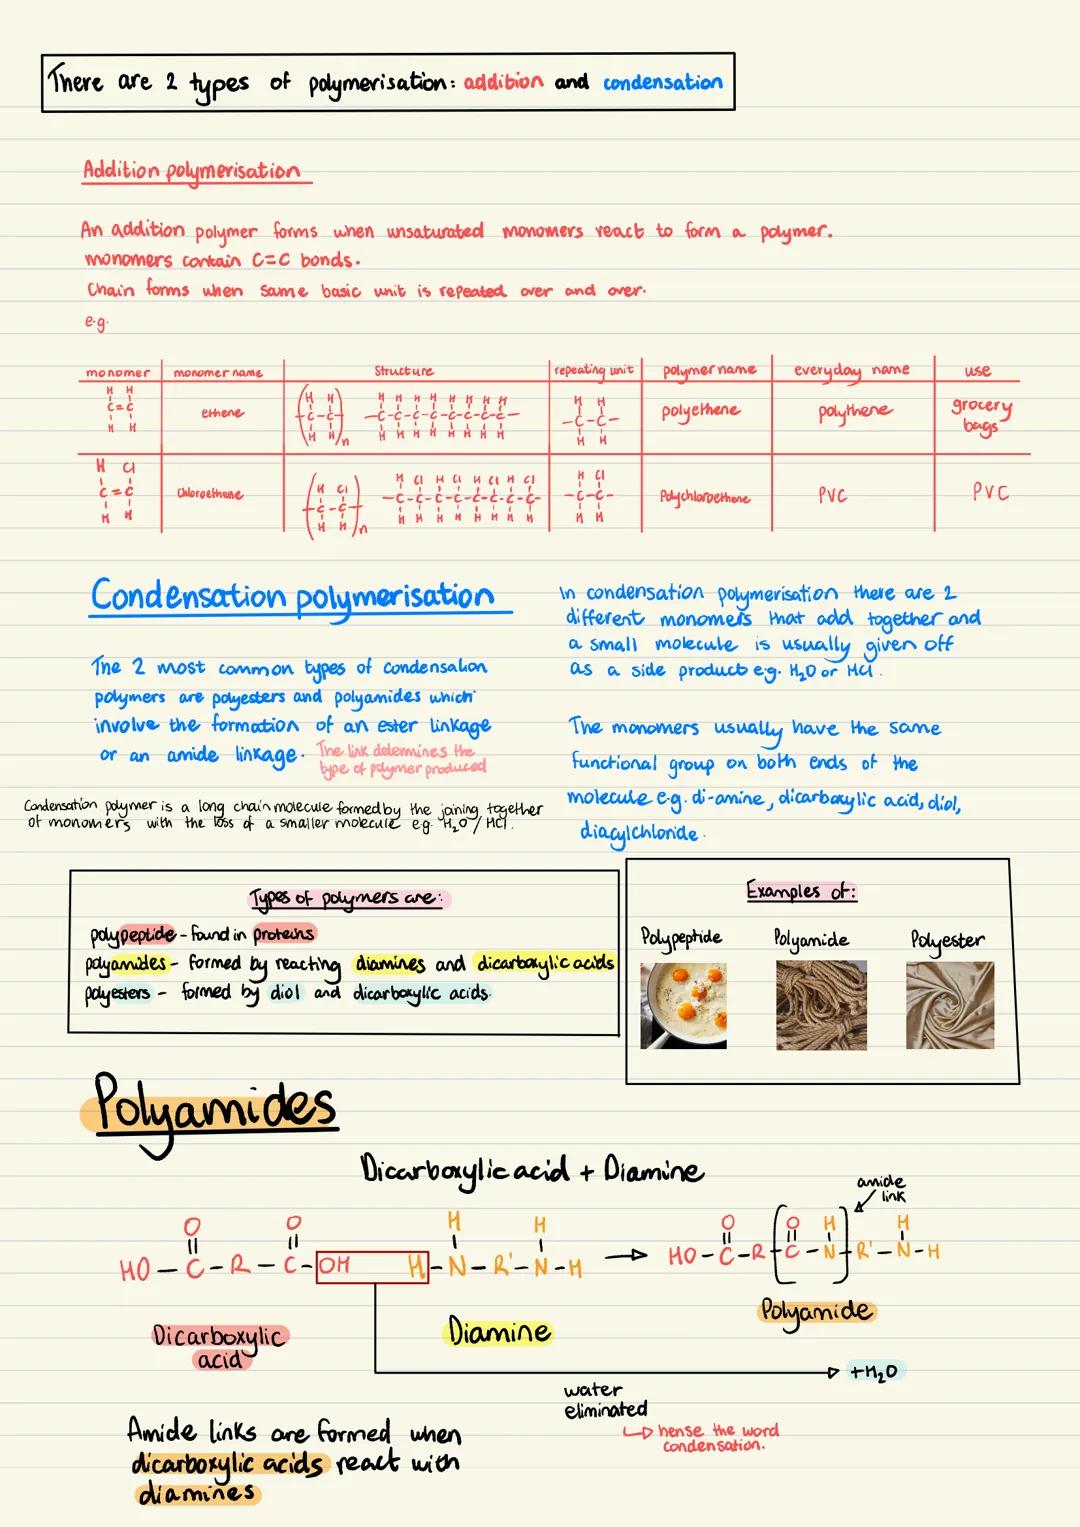 There are 2 types of polymerisation: addition and condensation
Addition polymerisation
An addition polymer forms when unsaturated monomers react to form a polymer.
monomers contain C=C bonds.
Chain forms when same basic unit is repeated over and over.
e.g.
monomer | monomer name | Structure | repeating unit | polymer name | everyday name | use
H H
C=C
H H
ethene
H H
-C-C-
H H n
H H H H H H H H
-C-C-C-C-C-C-C-C-
H H H H H H H H
H H
-C-C-
H H
polyethene
polythene
grocery
bags
H Cl
C=C
H H
Chloroethene
H Cl
-C-C-
H H n
H Cl H Cl H Cl H Cl
-C-C-C-C-C-C-C-C-
H H H H H H H H
H Cl
-C-C-
H H
Polychloroethene
PVC
PVC
Condensation polymerisation
The 2 most common types of condensation
polymers are polyesters and polyamides which
involve the formation of an ester linkage
or an amide linkage. The link determines the
type of polymer produced
Condensation polymer is a long chain molecule formed by the joining together
of monomers with the loss of a smaller molecule e.g. H₂O / HCl.
In condensation polymerisation there are 2
different monomers that add together and
a small molecule is usually given off
as a side product e.g. H₂O or HCl.
The monomers usually have the same
functional group on both ends of the
molecule e.g. di-amine, dicarboxylic acid, diol,
diacylchloride.
Types of polymers are:
polypeptide - found in proteins
polyamides - formed by reacting diamines and dicarboxylic acids
polyesters - formed by diol and dicarboxylic acids.
Examples of:
Polypeptide Polyamide Polyester
Polyamides
Dicarboxylic acid + Diamine
amide
link
O O H H O O H H
HO-C-R-C-OH H-N-R'-N-H → HO-C-R-C-N-R'-N-H
Dicarboxylic
acid
Diamine
Polyamide
+H₂O
water
eliminated
↳ hense the word
condensation.
Amide links are formed when
dicarboxylic acids react with
diamines